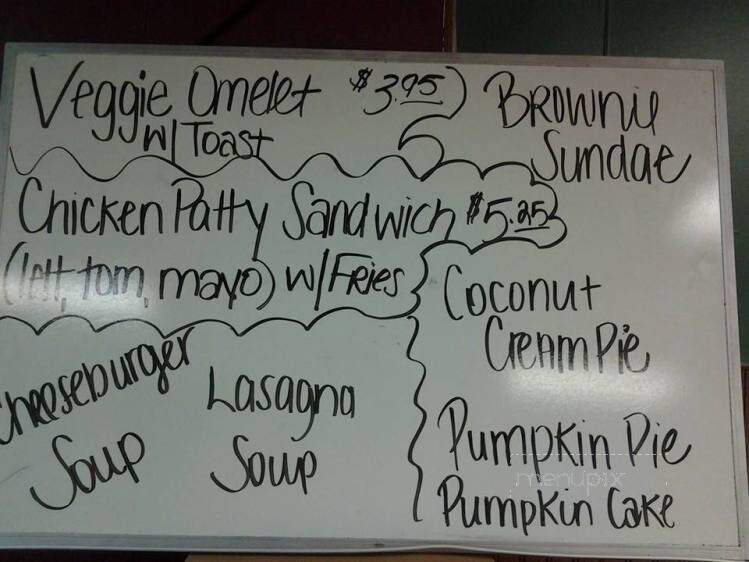 Veggie Omelet $3.95
w/ Toast
Chicken Patty Sandwich $5.25
(lett, tom, mayo) w/Fries
Cheeseburger
Soup
Lasagna
Soup
Brownie
Sundae
Coconut
Cream Pie
Pumpkin Pie
Pumpkin Cake
menupix